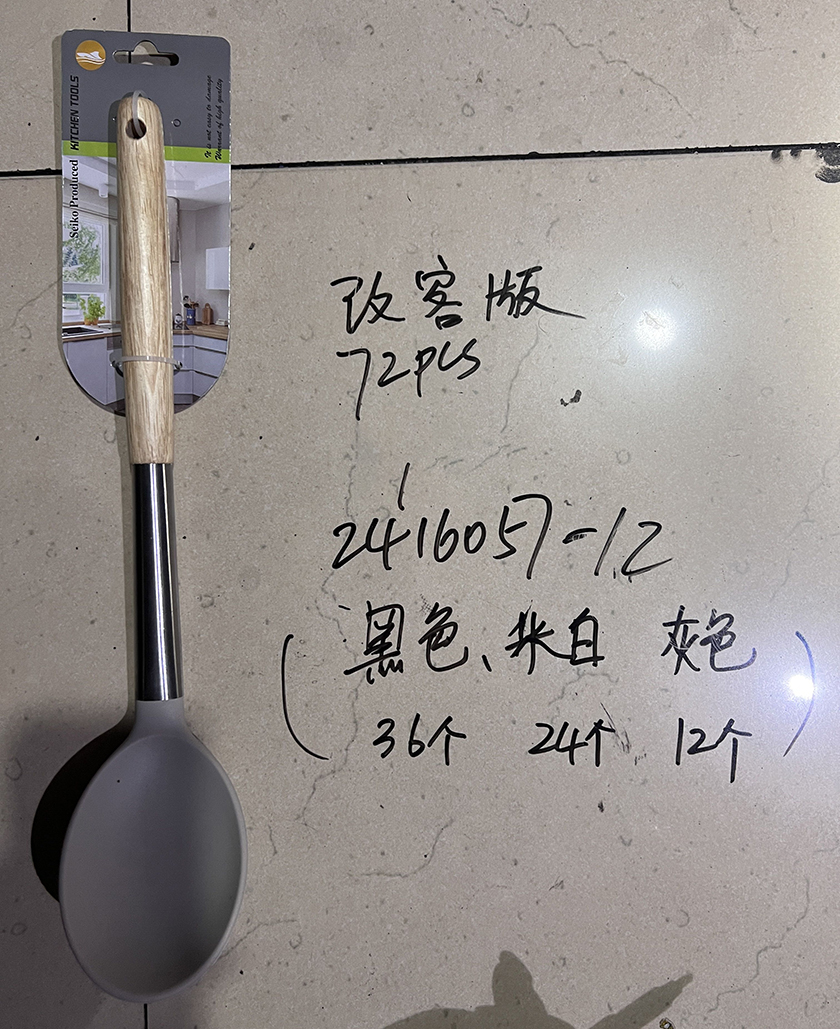 KITCHEN TOOLS
Seiko Produced
It is not easy to damage
Warrant of high quality
改客版
72pcs
1
2416057-12
(黑色、米白 灰色
36个 24个 12个)